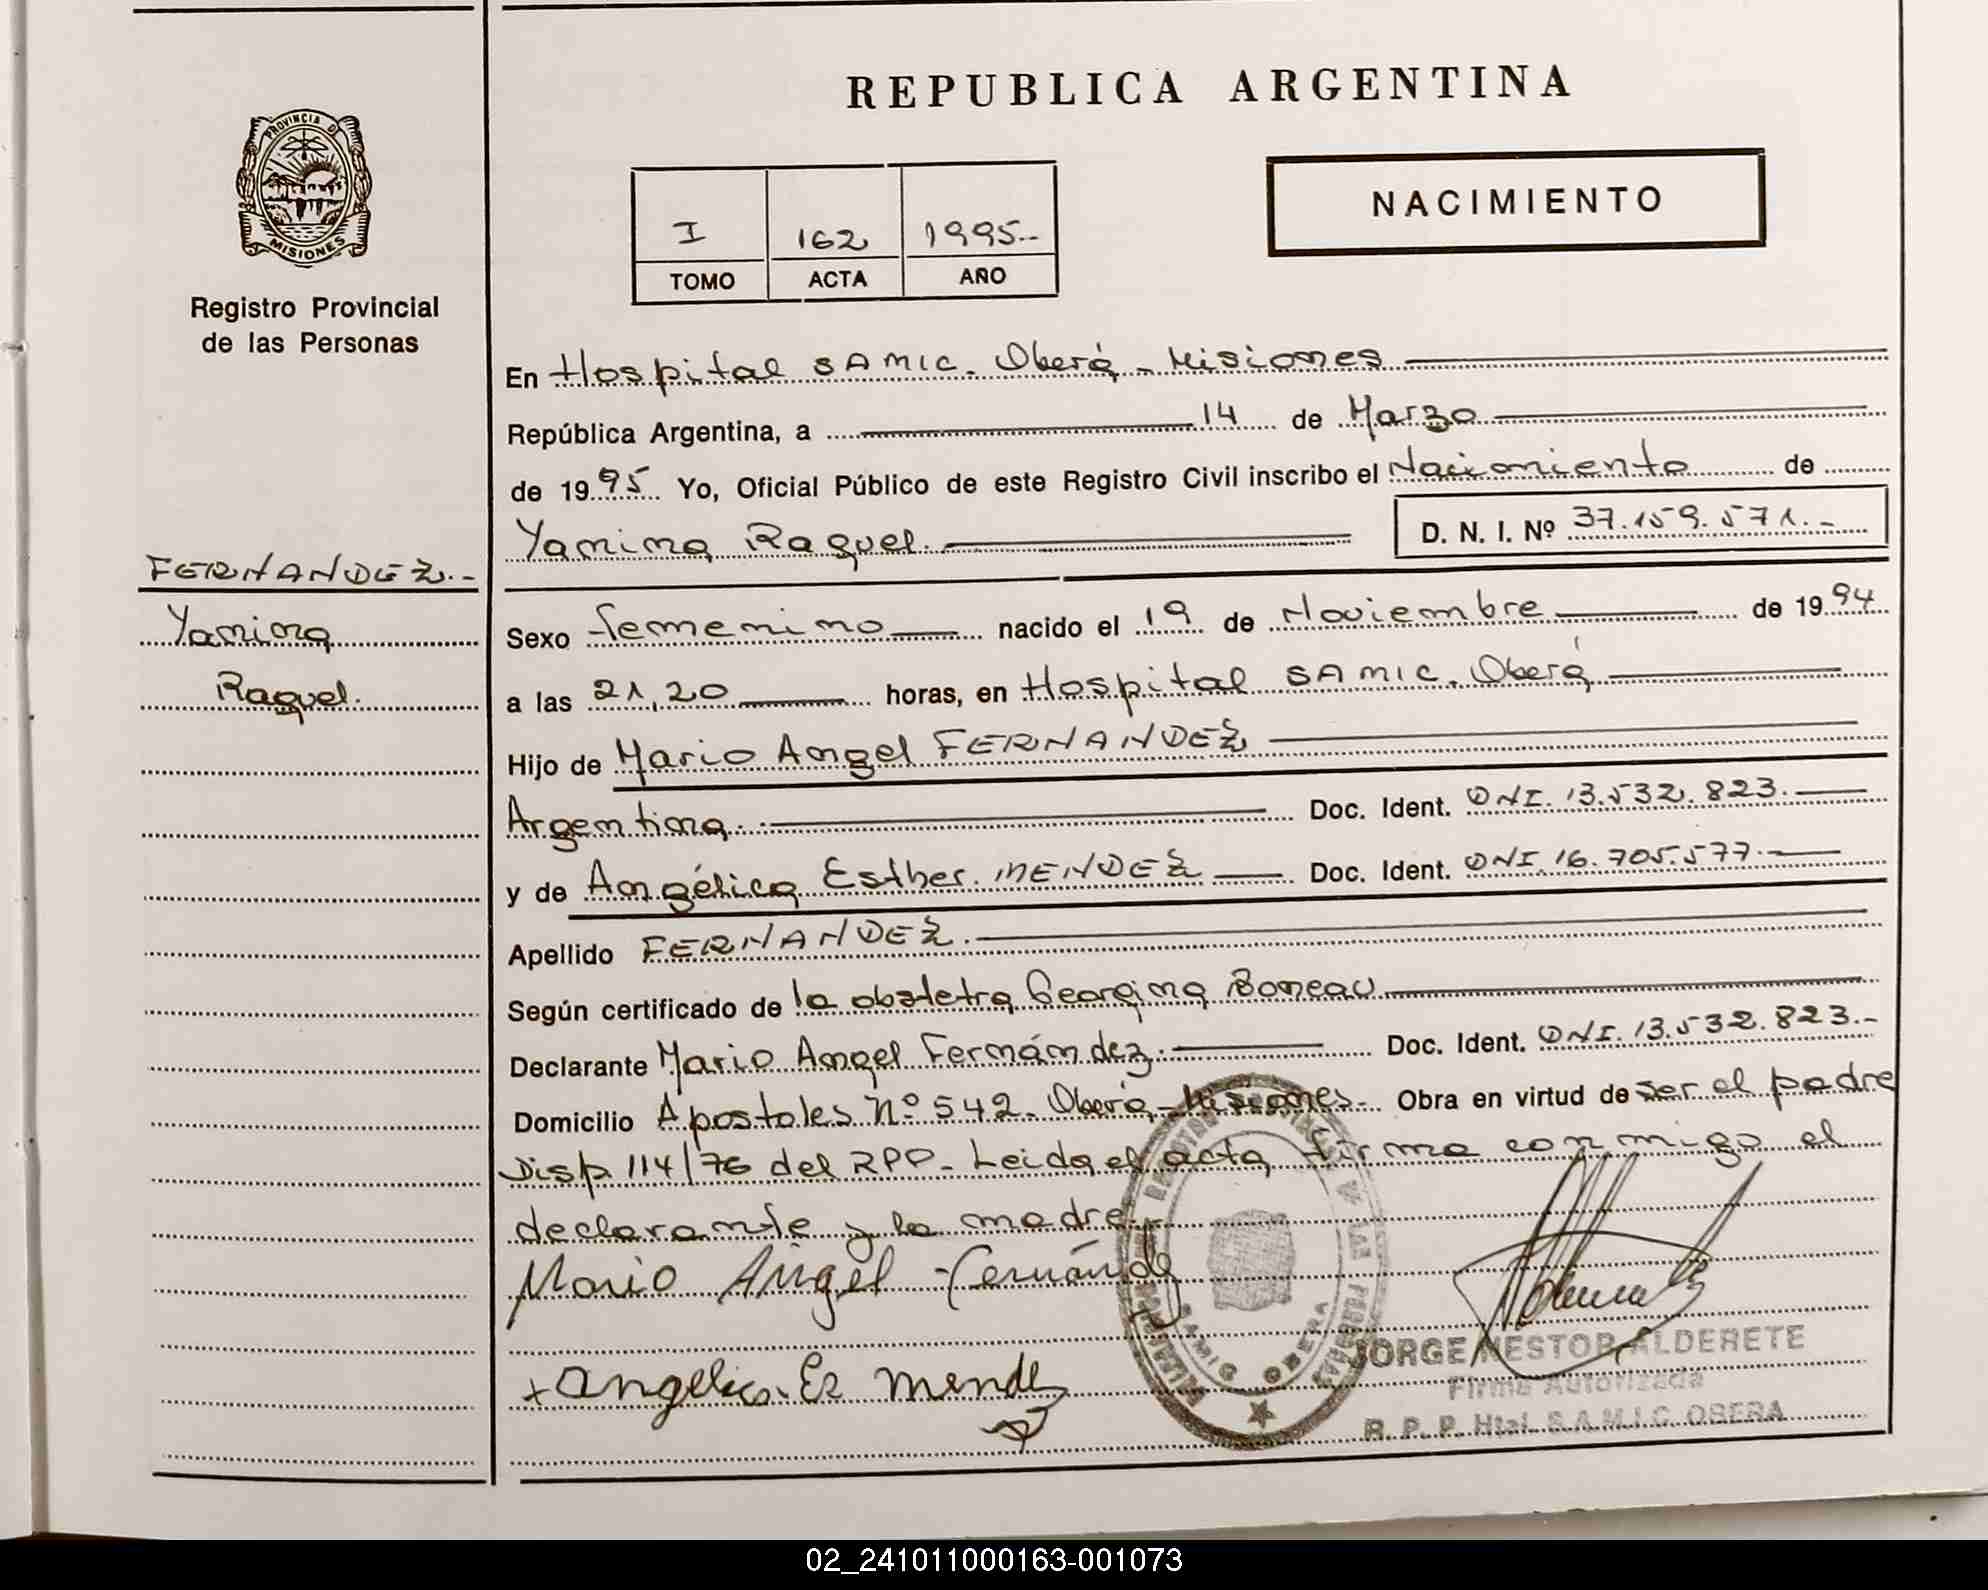 REPUBLICA ARGENTINA
NACIMIENTO
PROVINCIA DE
MISIONES
Registro Provincial
de las Personas
I 162 1995.-
TOMO ACTA AÑO
En Hospital SAMIC. Oberá - Misiones
República Argentina, a 14 de Marzo
de 1995 Yo, Oficial Público de este Registro Civil inscribo el Nacimiento de
Yanina Raquel. D. N. I. Nº 37.159.571.-
FERNANDEZ.-
Yanina
Raquel.
Sexo Femenino nacido el 19 de Noviembre de 1994
a las 21,20 horas, en Hospital SAMIC. Oberá
Hijo de Mario Angel FERNANDEZ
Argentina. Doc. Ident. DNI. 13.532.823.
y de Angélica Esther MENDEZ Doc. Ident. DNI. 16.705.577.
Apellido FERNANDEZ.
Según certificado de la obstetra Georgina Boneau
Declarante Mario Angel Fernández. Doc. Ident. DNI. 13.532.823.-
Domicilio Apostoles Nº 542. Oberá - Misiones. Obra en virtud de ser el padre
Disp. 114/76 del RPP - Leida el acta firma conmigo el
declarante y la madre.
Mario Angel Fernández
+ Angelica Es Mendez
SAMIC OBERA
JORGE NESTOR ALDERETE
Firma Autorizada
R. P. P. Htal. S.A.M.I.C. OBERA
02_241011000163-001073